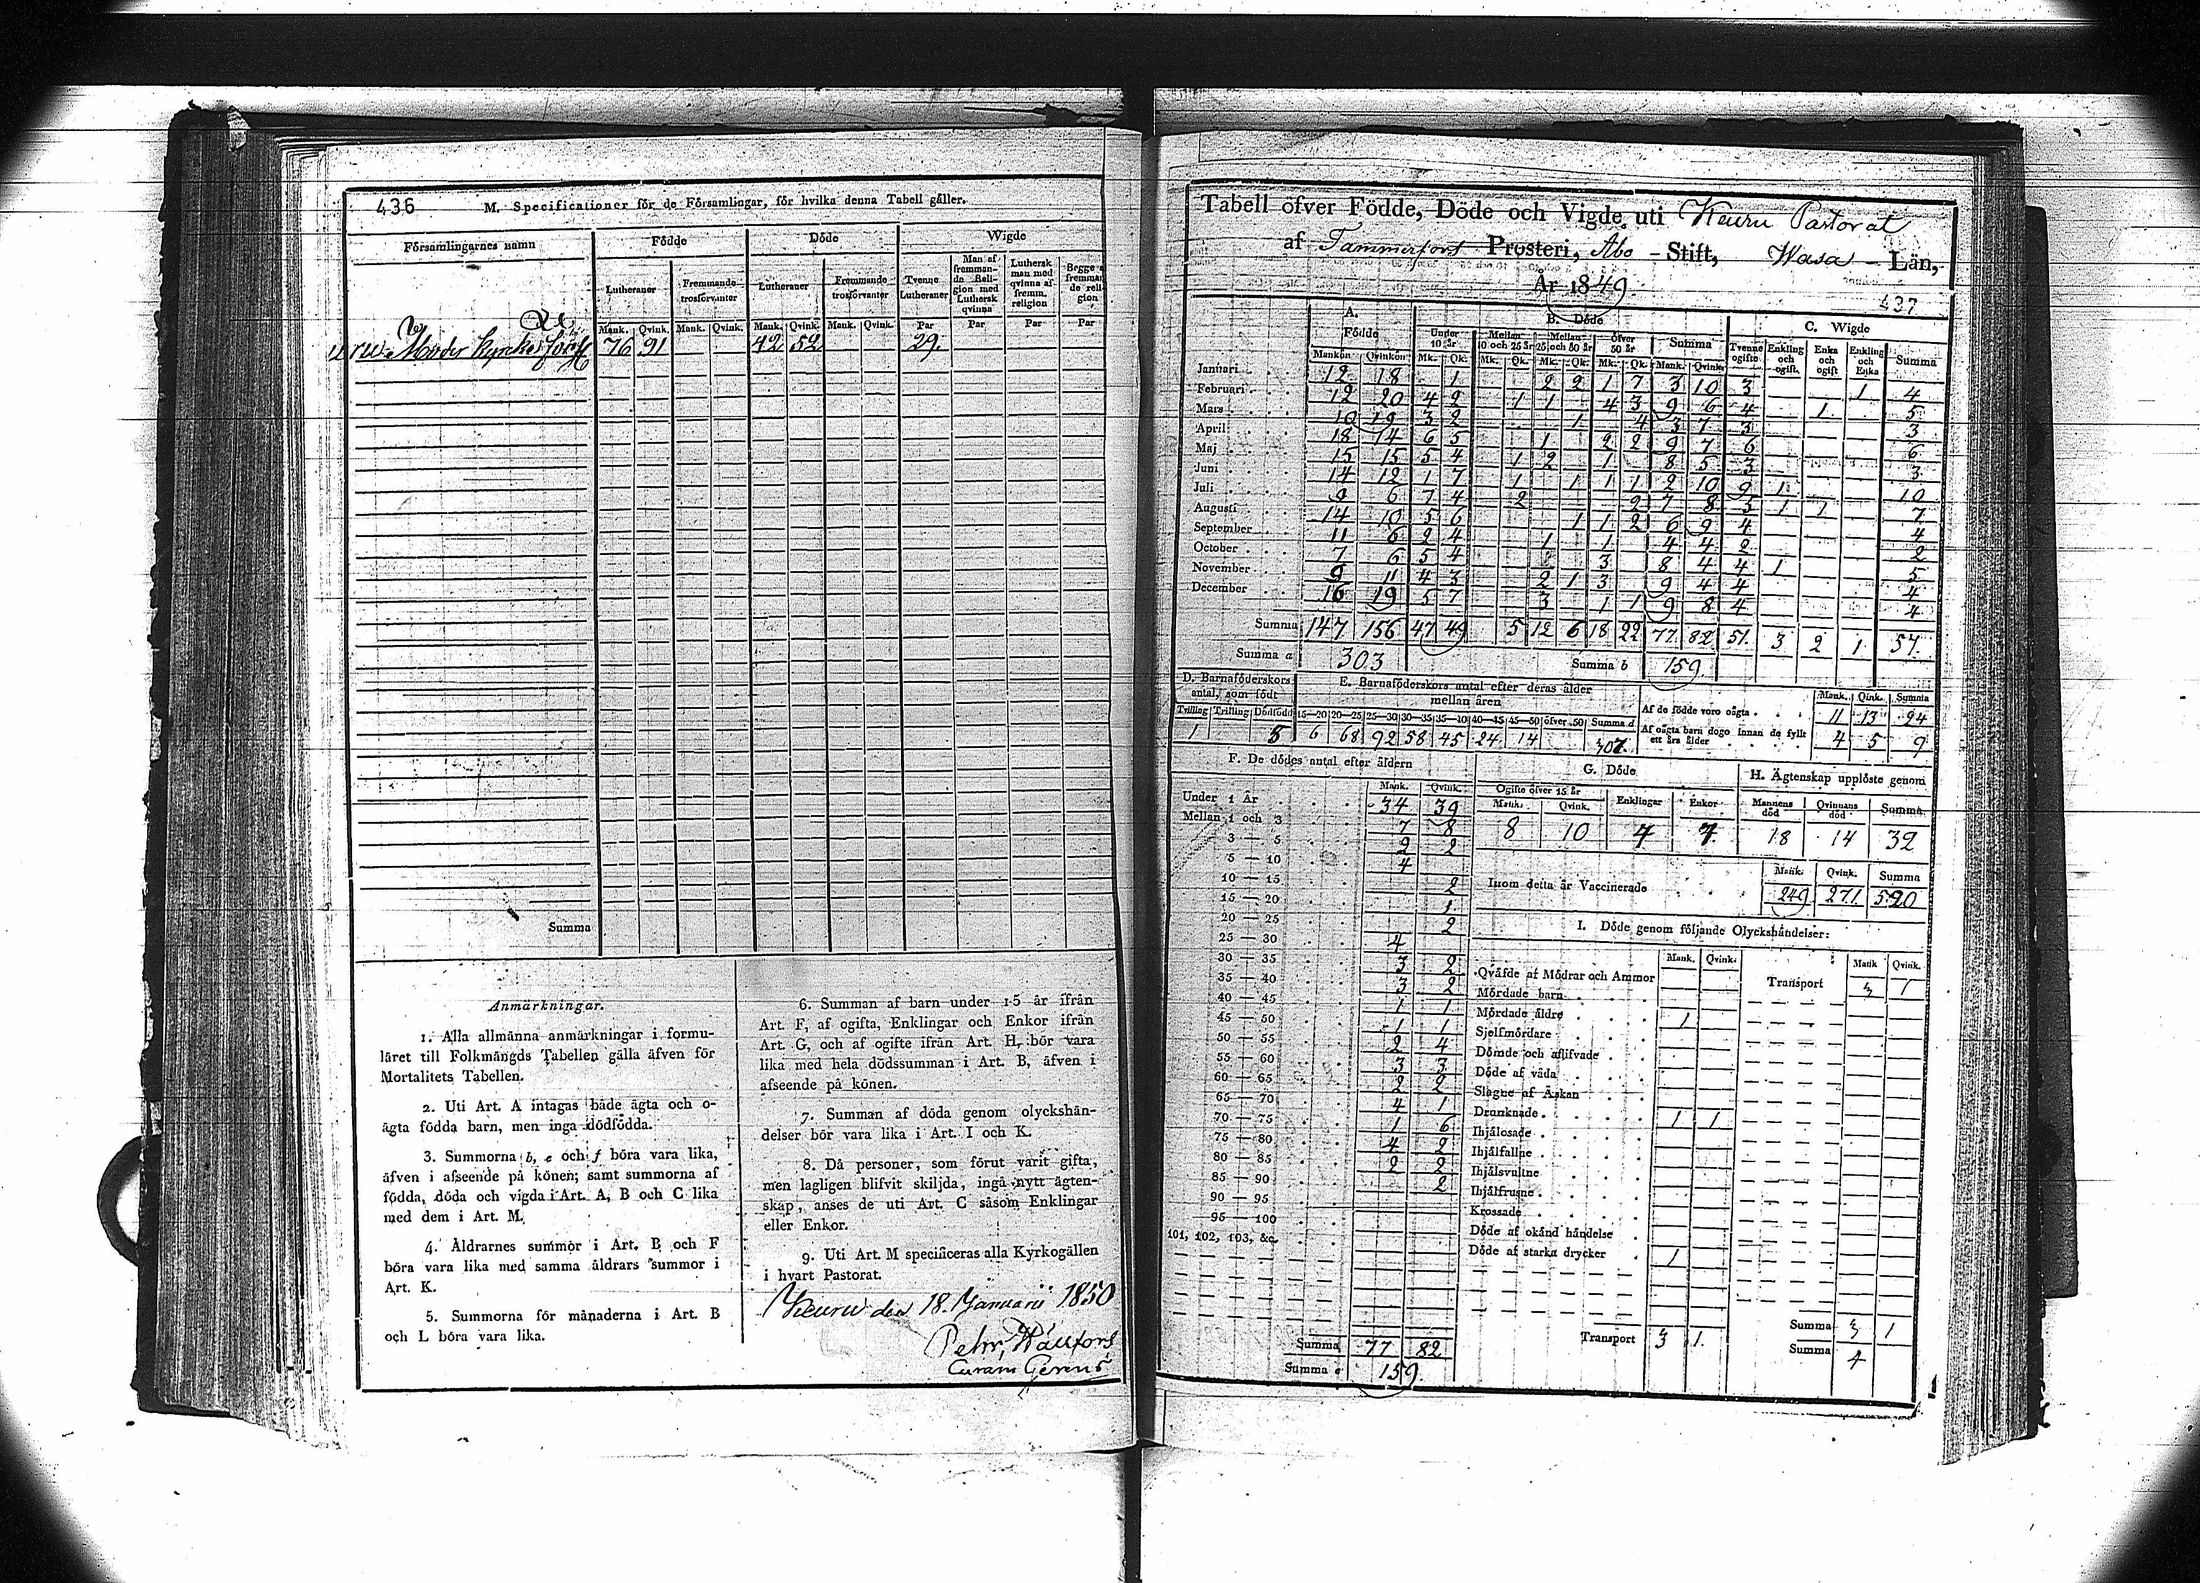 436
M. Specificationer för de Församlingar, för hvilka denna Tabell gäller.
Församlingarnes namn
Födde
Döde
Wigde
Lutheraner
Fremmande trosförvanter
Lutheraner
Fremmande trosförvanter
Tvenne Lutheraner
Man af fremmande Religion med Luthersk qvinna
Luthersk man med qvinna af fremm. religion
Begge fremmande religion
Mank. Qvink. Mank. Qvink. Mank. Qvink. Mank. Qvink. Par Par Par Par
Moder Kyrko 76 91 42 52 29.
Summa
Anmärkningar.
1. Alla allmänna anmärkningar i formu-
läret till Folkmängds Tabellen gälla äfven för
Mortalitets Tabellen.
2. Uti Art. A intagas både ägta och o-
ägta födda barn, men inga dödfödda.
3. Summorna b, e och f böra vara lika,
äfven i afseende på könen; samt summorna af
födda, döda och vigda i Art. A, B och C lika
med dem i Art. M.
4. Åldrarnes summor i Art. B och F
böra vara lika med samma åldrars summor i
Art. K.
5. Summorna för månaderna i Art. B
och L böra vara lika.
6. Summan af barn under 15 år ifrån
Art. F, af ogifta, Enklingar och Enkor ifrån
Art. G, och af ogifte ifrån Art. H, bör vara
lika med hela dödssumman i Art. B, äfven i
afseende på könen.
7. Summan af döda genom olyckshän-
delser bör vara lika i Art. I och K.
8. Då personer, som förut varit gifta,
men lagligen blifvit skiljda, ingå nytt ägten-
skap, anses de uti Art. C såsom Enklingar
eller Enkor.
9. Uti Art. M specificeras alla Kyrkogällen
i hvart Pastorat.
Keuru den 18. Januarii 1850
Pehr Wallfors
Curam Gerens
Tabell öfver Födde, Döde och Vigde uti Keuru Pastorat
af Tammerfors Prosteri, Åbo Stift, Wasa Län,
År 1849.
437
A. Födde
B. Döde
C. Wigde
Under 10 år
Mellan 10 och 25 år
Mellan 25 och 50 år
Öfver 50 år
Summa
Tvenne ogifte
Enkling och ogift.
Enka och ogift
Enkling och Enka
Summa
Mankön Qvinkön Mk. Qk. Mk. Qk. Mk. Qk. Mk. Qk. Mank. Qvink.
Januari 12 18 1 2 2 1 7 3 10 3 1 4
Februari 12 20 4 2 1 1 4 3 9 6 4 1 5
Mars 10 19 3 2 1 4 3 7 3 3
April 18 14 6 5 1 2 2 9 7 6 6
Maj 15 15 5 4 1 2 1 8 5 3 3
Juni 14 12 1 7 1 1 1 1 2 10 9 1 10
Juli 9 6 7 4 2 2 7 8 5 1 1 7
Augusti 14 10 5 6 1 1 2 6 9 4 4
September 11 6 2 4 1 1 4 4 2 2
October 7 6 5 4 3 8 4 4 1 5
November 9 11 4 3 2 1 3 9 4 4 4
December 16 19 5 7 3 1 1 9 8 4 4
Summa 147 156 47 49 5 12 6 18 22 77 82 51. 3 2 1 57.
Summa a 303 Summa b 159
D. Barnaföderskors antal, som födt
E. Barnaföderskors antal efter deras ålder mellan åren
Tvilling Trilling Dödfödd 15—20 20—25 25—30 30—35 35—40 40—45 45—50 öfver 50 Summa d
1 8 6 68 92 58 45 24 14 307.
Mank. Qink. Summa
Af de födde voro oägta 11 13 24
Af oägta barn dogo innan de fyllt ett års ålder 4 5 9
F. De dödes antal efter åldern
Mank. Qvink.
Under 1 År 34 39
Mellan 1 och 3 7 8
3 — 5 2 2
5 — 10 4
10 — 15 2
15 — 20 1
20 — 25 2
25 — 30 4
30 — 35 3 2
35 — 40 3 2
40 — 45 1 1
45 — 50 1 1
50 — 55 2 4
55 — 60 3 3
60 — 65 2 2
65 — 70 4 1
70 — 75 1 6
75 — 80 4 2
80 — 85 2 2
85 — 90 2
90 — 95
95 — 100
101, 102, 103, &c.
Summa 77 82
Summa e 159.
G. Döde
Ogifte öfver 15 år
Mank. Qvink. Enklingar Enkor
8 10 4 7.
H. Ägtenskap upplöste genom
Mannens död Qvinnans död Summa
18 14 32
Mank. Qvink. Summa
Inom detta år Vaccinerade 249 271. 520
I. Döde genom följande Olyckshändelser:
Mank. Qvink.
Transport
Mank Qvink.
3 1
Qväfde af Mödrar och Ammor
Mördade barn
Mördade äldre 1
Sjelfmördare
Dömde och aflifvade
Döde af våda
Slagne af Åskan
Drunknade 1 1
Ihjälosade
Ihjälfallne
Ihjälsvultne
Ihjälfrusne
Krossade
Döde af okänd händelse
Döde af starka drycker 1
Transport 3 1.
Summa 3 1
Summa 4